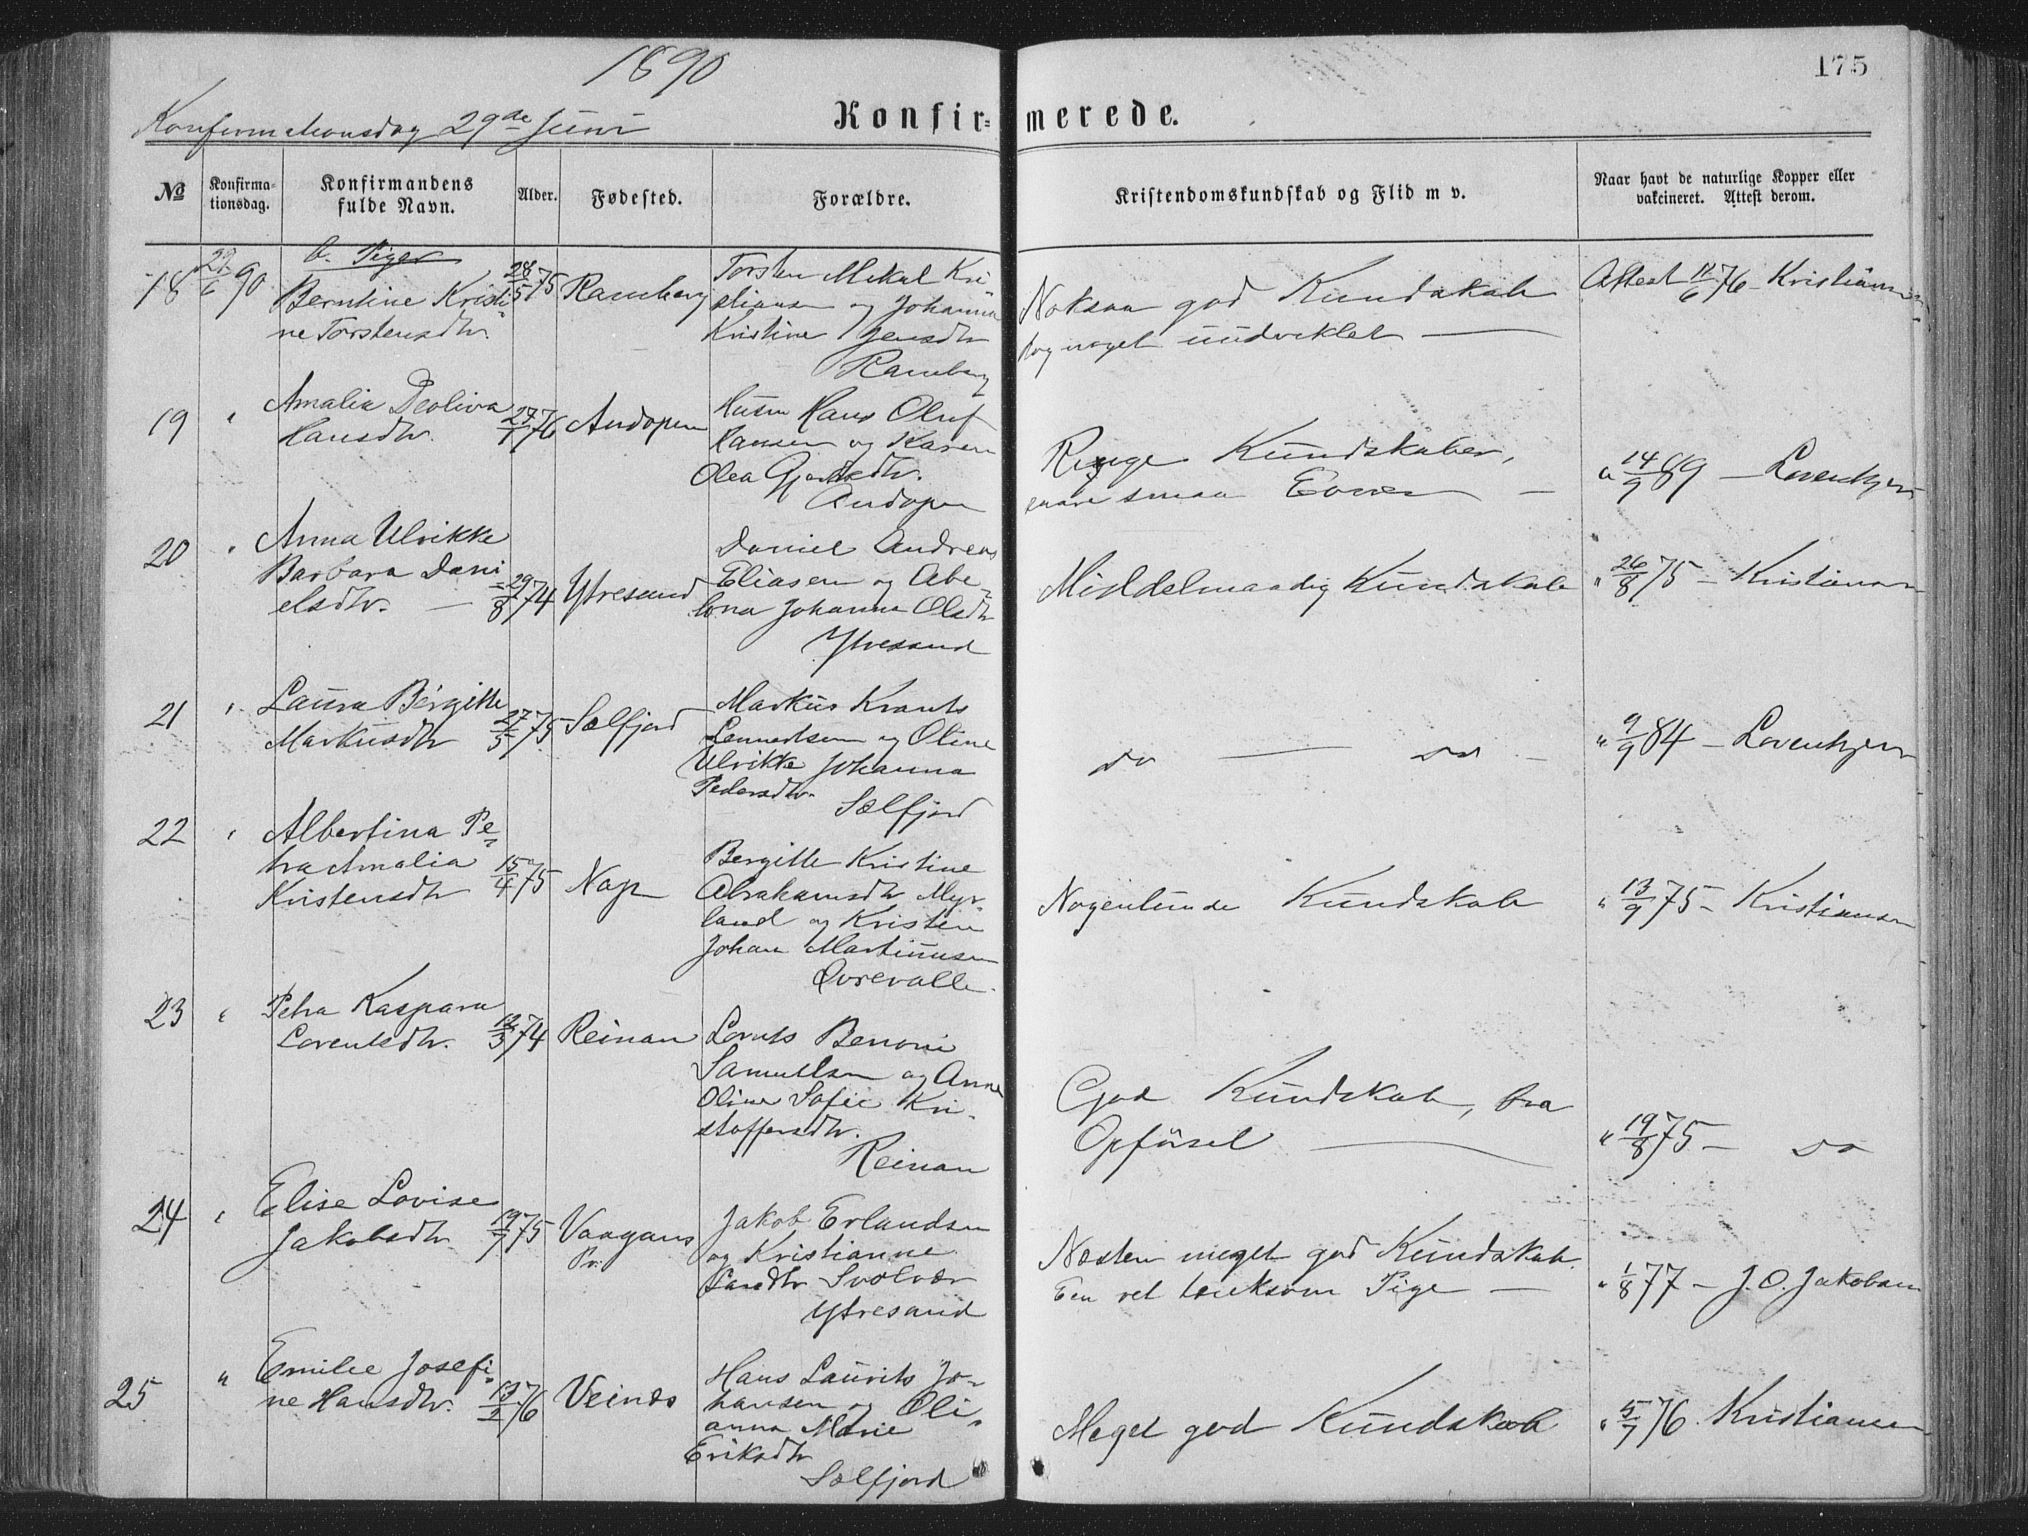 1890
175
Konfirmationsdag 29de Juni
Konfir= merede.
No
Konfirma=tionsdag.
Konfirmandens fulde Navn.
Alder.
Fødested.
Forældre.
Kristendomskundskab og Flid m v.
Naar havt de naturlige Kopper eller vakcineret. Attest derom.
b. Piger
18 29/6 90 Berntine Kristi
ne Torstensdtr.
28/5 75 Ramberg
Torsten Mekal Kri
stiansen og Johanna
Kristine Jensdtr
Ramberg
Noksaa god Kundskab
dog noget uudviklet —
Attest 11/6 76 - Kristiansen
19 " Amalia Deoliva
Hansdtr. 27/1 76 Andopen
Husm Hans Oluf
Hansen og Karen
Olea
Andopen
Ringe Kundskaber,
smaa Evner —
" 14/9 89 - Lorentzen
20 " Anna Ulrikke
Barbara Dani
elsdtr. — 29/8 74 Ytresand
Daniel Andreas
Eliasen og Abe
lona Johanna Olsdtr
Ytresand
Middelmaadig Kundskab
" 26/8 75 - Kristiansen
21 " Laura Bergitte
Markusdtr 27/5 75 Selfjord
Markus Krants
Lennertsen og Oline
Ulrikke Johanna
Pedersdtr.
Selfjord
do — do —
" 9/9 84 - Lorentzen
22 " Albertina Pe=
tra Amalia
Kristensdtr 15/4 75 Nap
Bergitte Kristine
Abrahamsdtr Myr=
land og Kristen
Johan Martinusen
Øvrevalle.
Nogenlunde Kundskab
" 13/9 75 - Kristiansen
23 " Petra Kaspara
Lorentsdtr. 12/3 74 Reinan
Lorents Benoni
Samuelsen og Anne
Oline Sofie Kri-
stoffersdtr.
Reinan
God Kundskab, bra
Opførsel —
" 19/8 75 - do
24 " Elise Lovise
Jakobsdtr 19/7 75 Vaagans
Pr.
Jakob Erlandsen
og Kristianne
Larsdtr Svolvær
Ytresand
Næsten meget god Kundskab.
En ret tænksom Pige —
" 1/8 77 - J. O. Jakobsen
25 " Emilie Josefi=
ne Hansdtr. 13/2 76 Veines
Hans Laurits Jo-
hansen og Oli-
anna Marie
Eriksdtr
Selfjord
Meget god Kundskab
" 5/7 76. Kristiansen